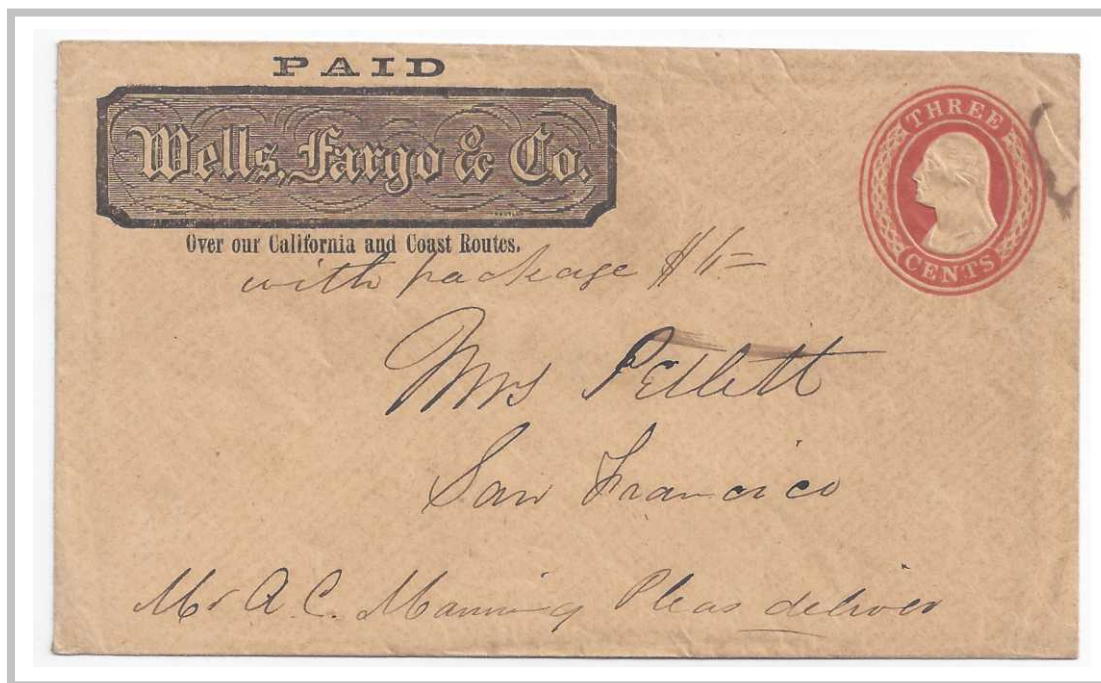 PAID
Wells, Fargo & Co.
Over our California and Coast Routes.
THREE
CENTS
with package
Mrs Pellett
San Francisco
Mr A. C. Manning Pleas deliver